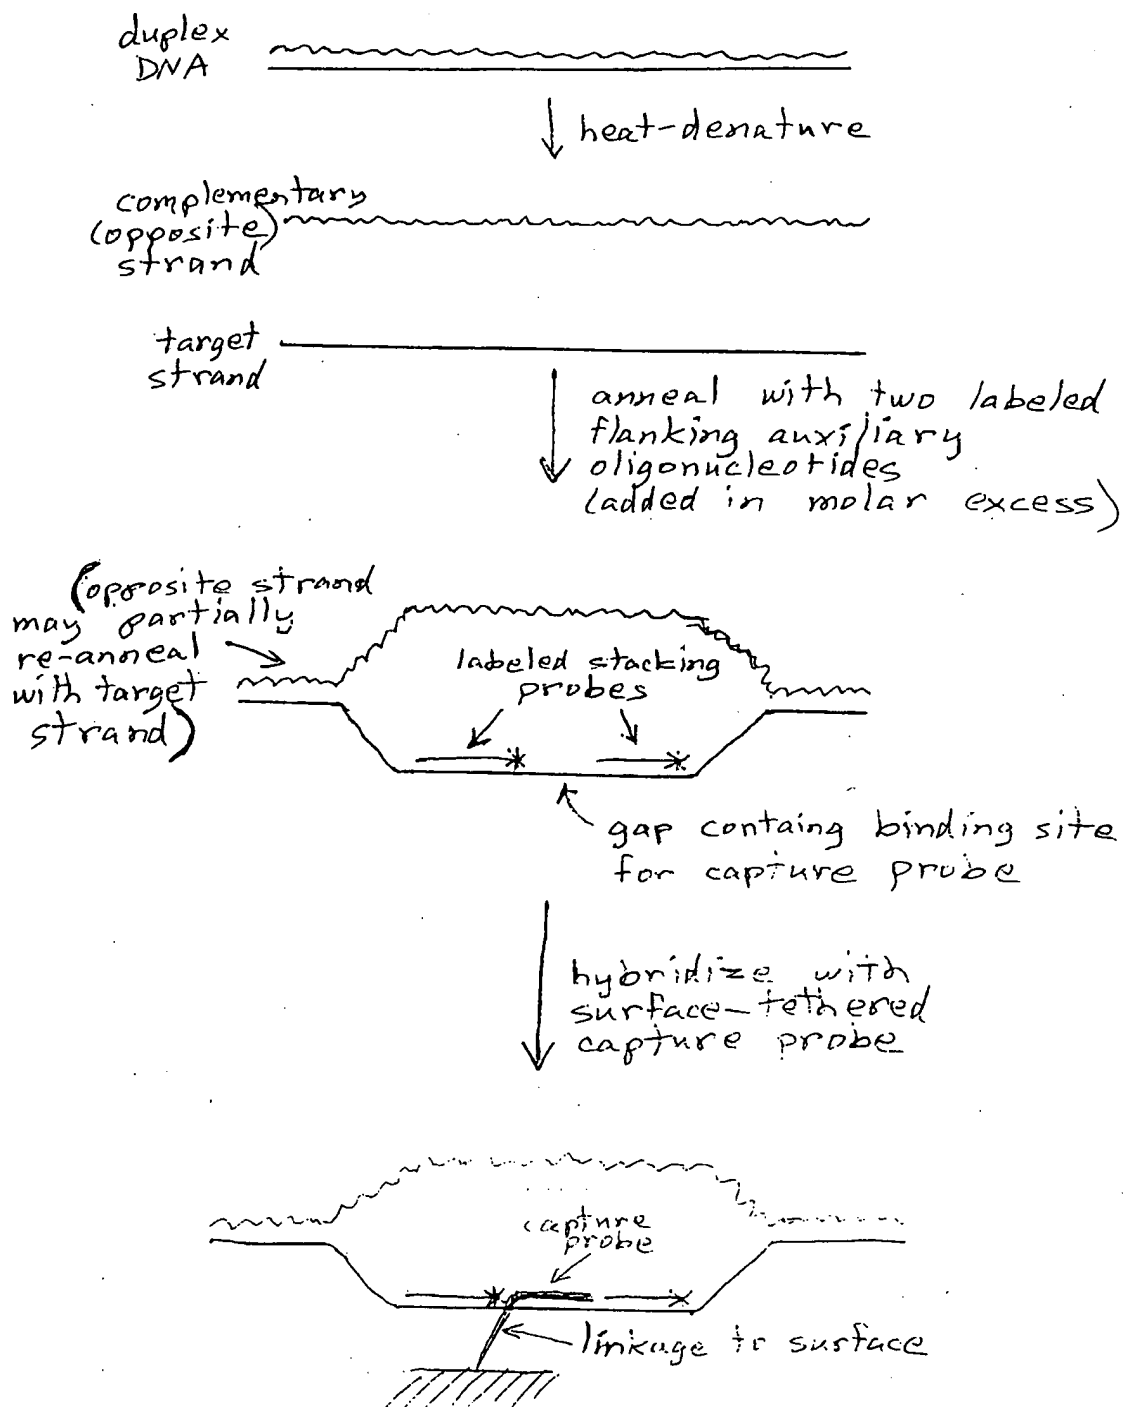 duplex
DNA
heat-denature
complementary
(opposite)
strand
target
strand
anneal with two labeled
flanking auxiliary
oligonucleotides
(added in molar excess)
(opposite strand
may partially
re-anneal
with target
strand)
labeled stacking
probes
gap containg binding site
for capture probe
hybridize with
surface-tethered
capture probe
capture
probe
linkage to surface